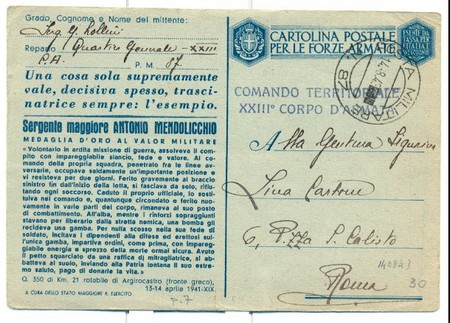 Grado, Cognome e Nome del mittente:
Ing. G. Rollini
Reparto Quartier Generale - XXIII
P.A. P. M. 87
Una cosa sola supremamente
vale, decisiva spesso, trasci-
natrice sempre: l'esempio.
Sergente maggiore ANTONIO MENDOLICCHIO
MEDAGLIA D'ORO AL VALOR MILITARE
«Volontario in ardita missione di guerra, assolveva il com-
pito con impareggiabile slancio, fede e valore. Al co-
mando della propria squadra, penetrato fra le linee av-
versarie, occupava saldamente un'importante posizione e
vi resisteva per due giorni. Ferito gravemente al braccio
sinistro fin dall'inizio della lotta, si fasciava da solo, rifiu-
tando ogni soccorso. Caduto il proprio ufficiale, lo sosti-
tuiva nel comando e, quantunque circondato e ferito nuo-
vamente in varie parti del corpo, rimaneva al suo posto
di combattimento. All'alba, mentre i rinforzi sopraggiunti
stavano per liberarlo dalla stretta nemica, una bomba gli
recideva una gamba. Per nulla scosso nella sua fede di
soldato, incitava i dipendenti alla difesa ed esortati sul-
l'unica gamba, impartiva ordini, come prima, con impareg-
giabile energia e sprezzo della morte ormai sicura. Avuto
il petto squarciato da una raffica di mitragliatrice, si ab-
batteva al suolo, inviando alla Patria lontana il suo estre-
mo saluto, pago di donarle la vita.»
Q. 350 di Km. 21 rotabile di Argirocastro (fronte greco),
13-14 aprile 1941-XIX
A CURA DELLO STATO MAGGIORE R. ESERCITO
p. 7
CARTOLINA POSTALE
PER LE FORZE ARMATE
ESENTE DA TASSA PER L'ITALIA
COMANDO TERRITORIALE
XXIII° CORPO D'ARMATA
POSTA MILITARE N. 87
Alla Gentma Signorina
Lina Carbone
6, P.zza S. Calisto
Roma
140843
30